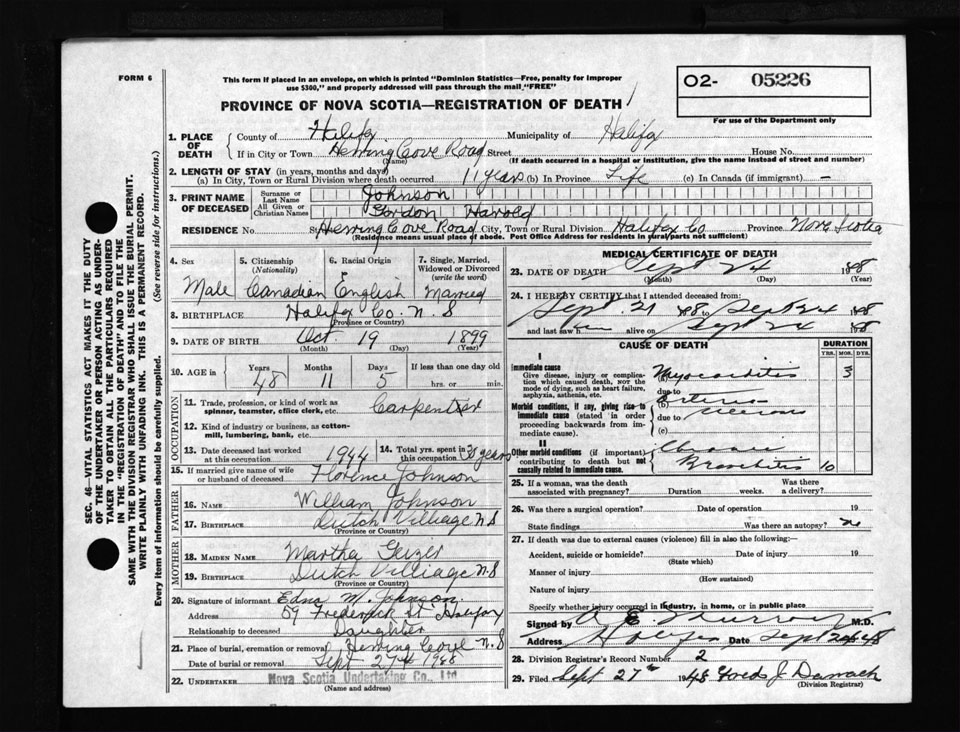 FORM 6
This form if placed in an envelope, on which is printed "Dominion Statistics—Free, penalty for improper
use $300," and properly addressed will pass through the mail "FREE"
PROVINCE OF NOVA SCOTIA—REGISTRATION OF DEATH
O2- 05226
For use of the Department only
1. PLACE OF DEATH
County of Halifax Municipality of Halifax
If in City or Town Herring Cove Road Street House No.
(Name) (If death occurred in a hospital or institution, give the name instead of street and number)
2. LENGTH OF STAY (in years, months and days)
(a) In City, Town or Rural Division where death occurred 11 years (b) In Province Life (c) In Canada (if immigrant) —
3. PRINT NAME OF DECEASED
Surname or Last Name Johnson
All Given or Christian Names Gordon Harold
RESIDENCE No. St. Herring Cove Road City, Town or Rural Division Halifax Co Province Nova Scotia
(Residence means usual place of abode. Post Office Address for residents in rural parts not sufficient)
4. Sex Male
5. Citizenship (Nationality) Canadian
6. Racial Origin English
7. Single, Married, Widowed or Divorced (write the word) Married
8. BIRTHPLACE Halifax Co. N.S
(Province or Country)
9. DATE OF BIRTH Oct. 19 1899
(Month) (Day) (Year)
10. AGE in Years 48 Months 11 Days 5 If less than one day old
hrs. or min.
OCCUPATION
11. Trade, profession, or kind of work as
spinner, teamster, office clerk, etc. Carpenter
12. Kind of industry or business, as cotton-
mill, lumbering, bank, etc.
13. Date deceased last worked at this occupation 1944 14. Total yrs. spent in this occupation years
15. If married give name of wife or husband of deceased Florence Johnson
FATHER
16. NAME William Johnson
17. BIRTHPLACE Dutch Village N.S
(Province or Country)
MOTHER
18. MAIDEN NAME Martha Geizer
19. BIRTHPLACE Dutch Villiage N.S
(Province or Country)
20. Signature of informant Edna M. Johnson
Address 59 Frederick St Halifax
Relationship to deceased Daughter
21. Place of burial, cremation or removal Herring Cove N.S
Date of burial or removal Sept 27th 1948
22. UNDERTAKER Nova Scotia Undertaking Co., Ltd
(Name and address)
MEDICAL CERTIFICATE OF DEATH
23. DATE OF DEATH Sept 24 1948
(Month) (Day) (Year)
24. I HEREBY CERTIFY that I attended deceased from
Sept. 21 48 to Sept 24 1948
and last saw him alive on Sept 24 1948
CAUSE OF DEATH
DURATION
YRS. MOS. DYS.
I
Immediate cause
Give disease, injury or complication which caused death, not the mode of dying, such as heart failure, asphyxia, asthenia, etc.
(a) Myocarditis 3
due to
Morbid conditions, if any, giving rise to immediate cause (stated in order proceeding backwards from immediate cause).
(b) Arterio
due to
(c)
II
Other morbid conditions (if important) contributing to death but not causally related to immediate cause.
Chronic
Bronchitis 10
25. If a woman, was the death associated with pregnancy? Duration weeks. Was there a delivery?
26. Was there a surgical operation? Date of operation 19
State findings Was there an autopsy? no
27. If death was due to external causes (violence) fill in also the following:—
Accident, suicide or homicide? Date of injury 19
(State which)
Manner of injury
(How sustained)
Nature of injury
Specify whether injury occurred in Industry, in home, or in public place
Signed by A E Murray M.D.
Address Halifax Date Sept 24 48
28. Division Registrar's Record Number 2
29. Filed Sept 27th 1948 J Darrach
(Division Registrar)
SEC. 46—VITAL STATISTICS ACT MAKES IT THE DUTY
OF THE UNDERTAKER OR PERSON ACTING AS UNDER-
TAKER TO OBTAIN ALL THE PARTICULARS REQUIRED
IN THE "REGISTRATION OF DEATH" AND TO FILE THE
SAME WITH THE DIVISION REGISTRAR WHO SHALL ISSUE THE BURIAL PERMIT.
WRITE PLAINLY WITH UNFADING INK. THIS IS A PERMANENT RECORD.
Every item of information should be carefully supplied. (See reverse side for instructions.)